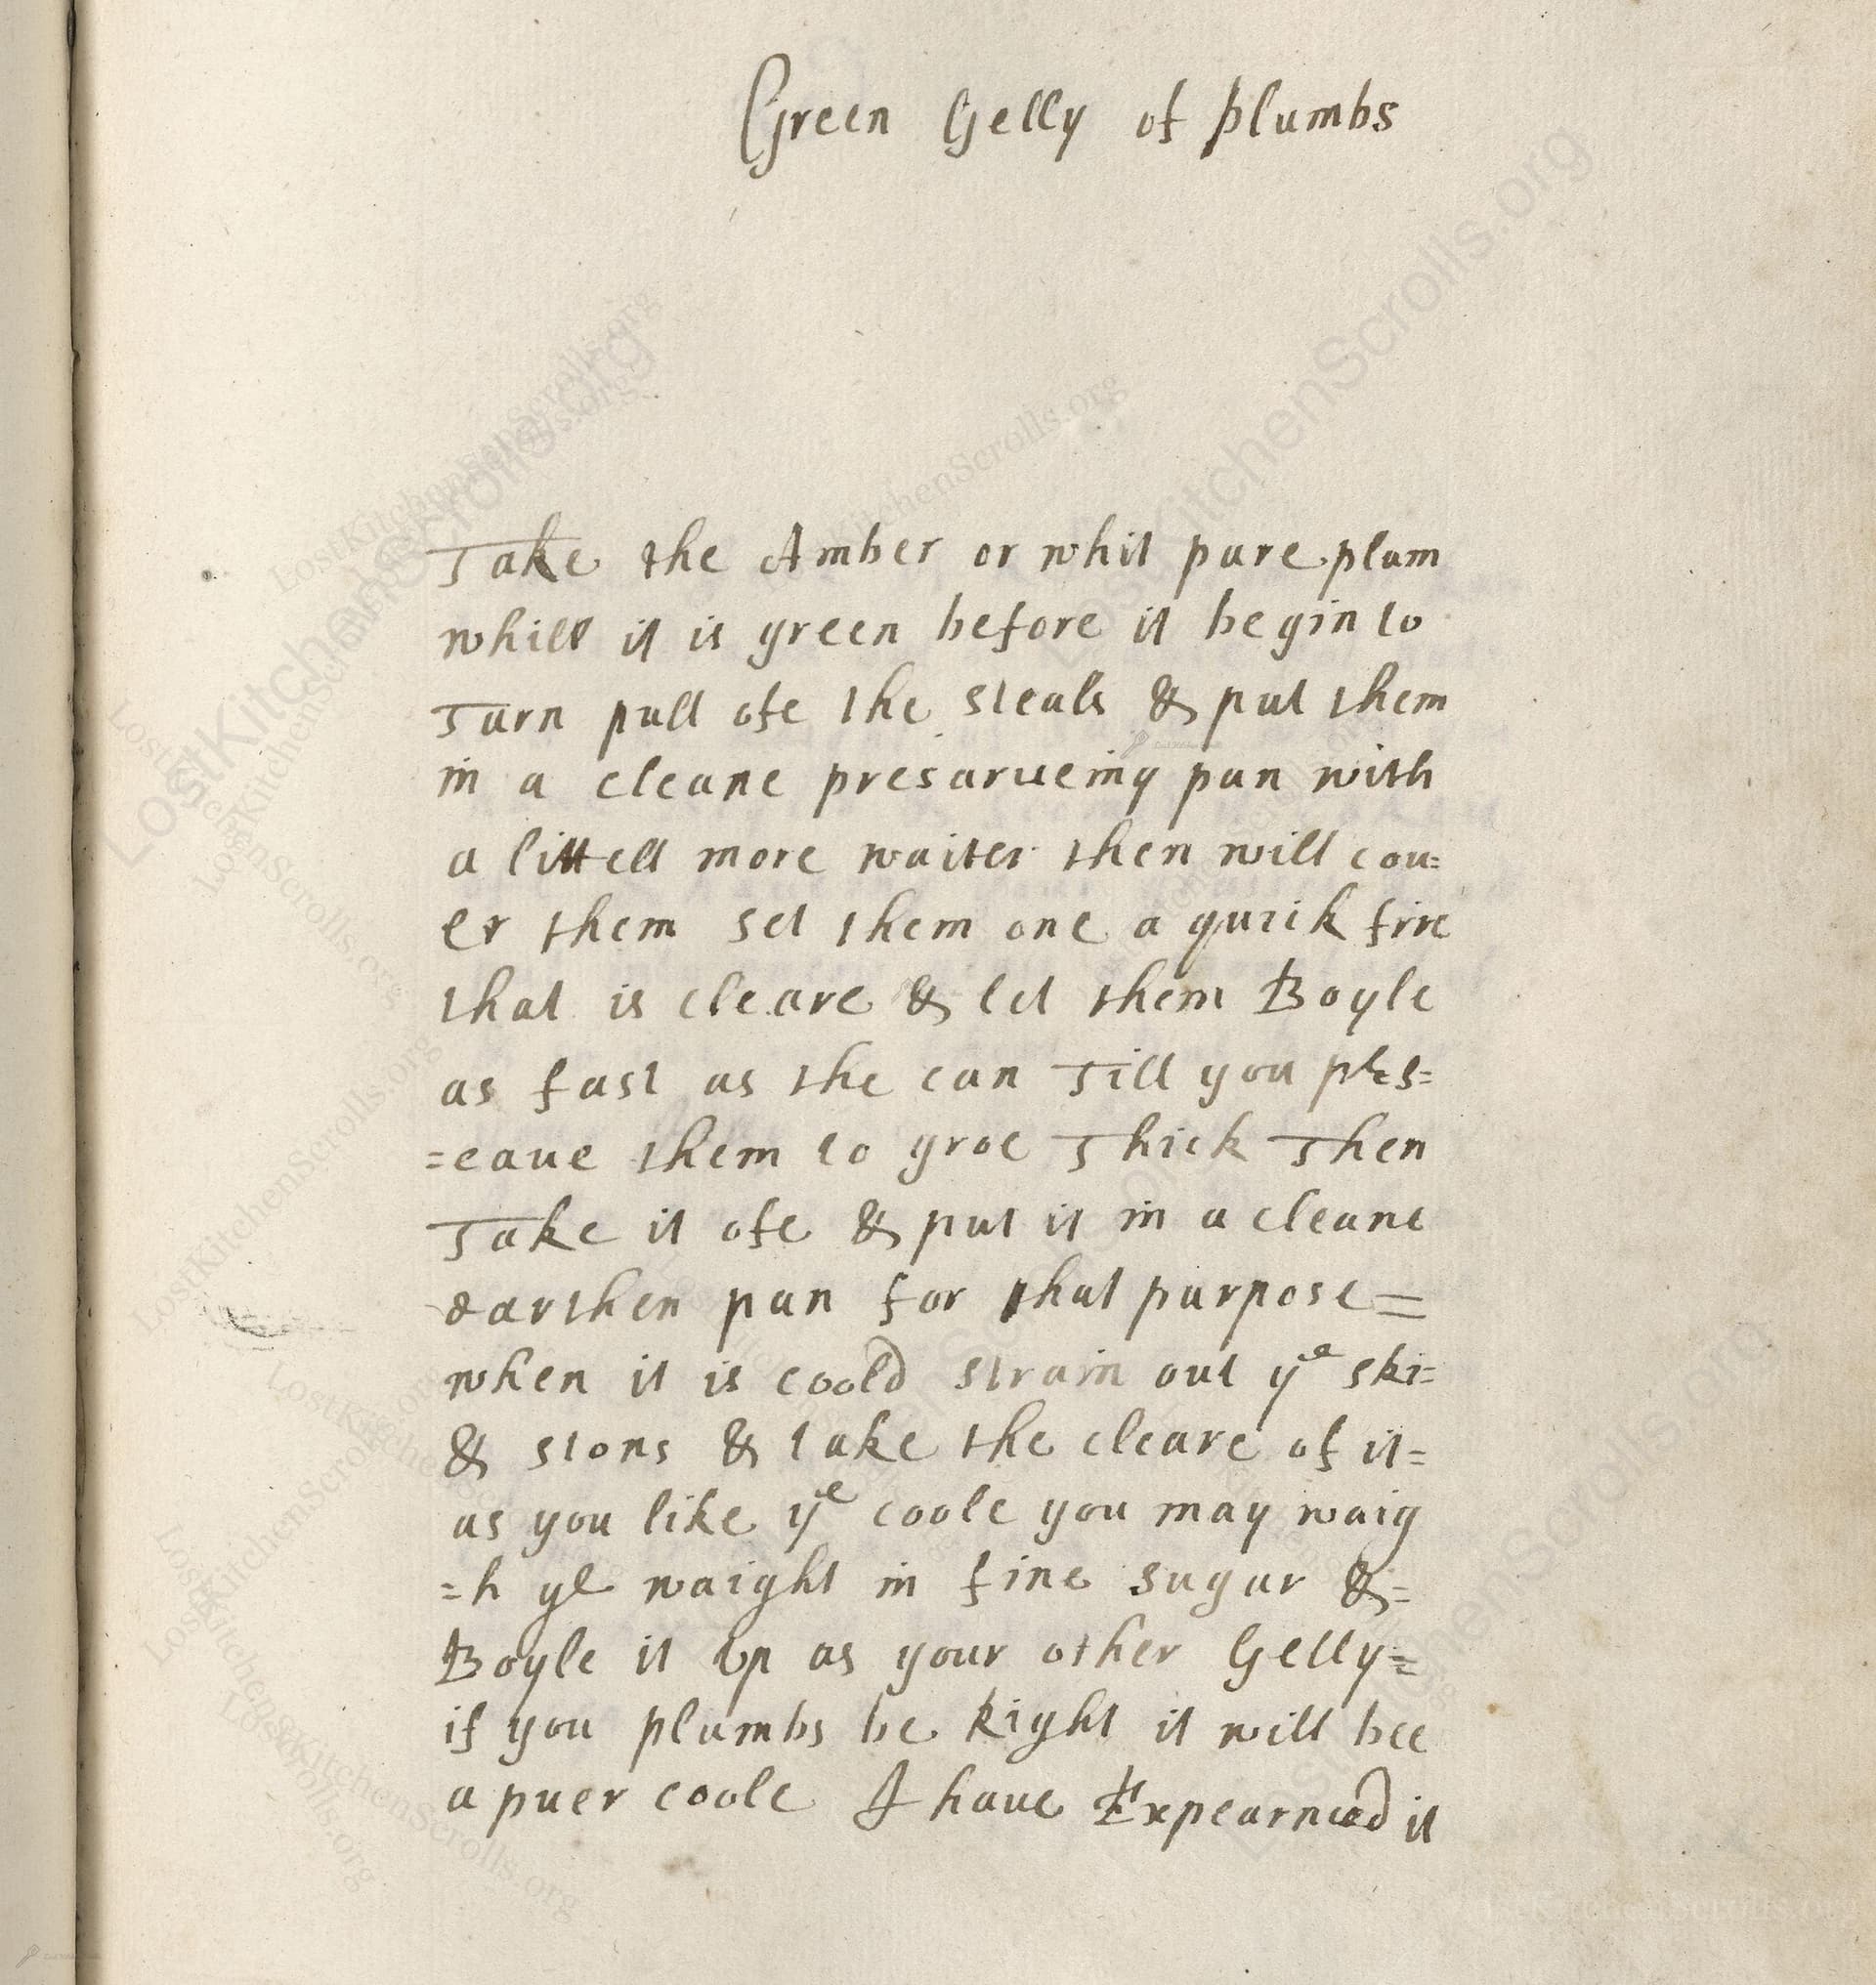 Green Gelly of plumbs
Take the Amber or whit pare plum
whill it is green before it begin to
Turn pull ofe the steals & put them
in a cleane presarueing pan with
a littell more waiter then will cou=
er them set them one a quick fire
that is cleare & let them Boyle
as fast as the can Till you
=eaue them to groe Thick Then
Take it ofe & put it in a cleane
earthen pan for that purpose=
when it is coold strain out yᵉ ski=
& stons & take the cleare of it=
as you like yᵉ coole you may waig
=h ye waight in fine sugar &=
Boyle it vp as your other Gelly=
if you plumbs be Right it will bee
a puer coole I have it
LostKitchenScrolls.org